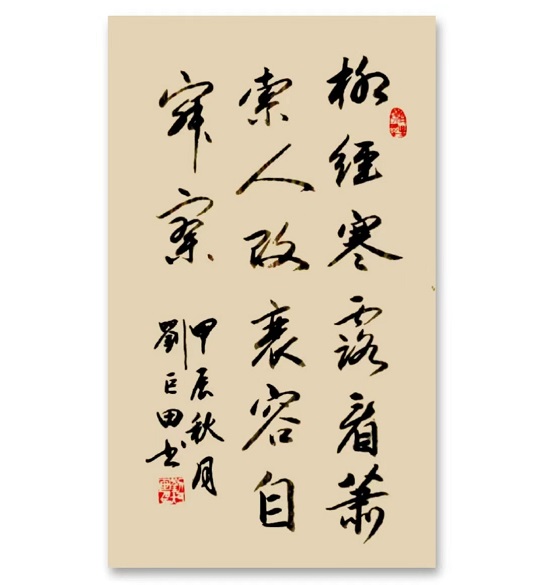 柳經寒露看蕭
索人改衰容自
寂寥
甲辰秋月
劉巨田书